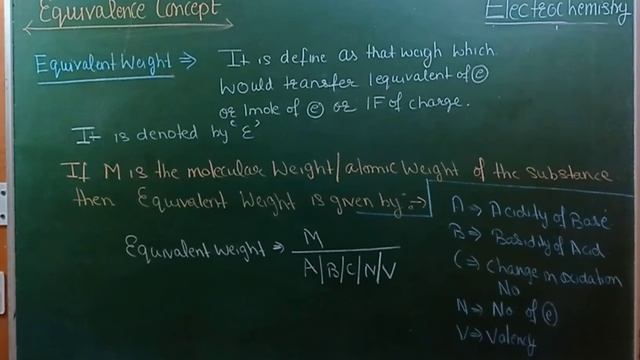 Equivalence Concept
Electrochemistry
Equivalent Weight ⇒ It is define as that weigh which
would transfer 1equivalent of ⓔ
or 1mole of ⓔ or 1F of charge.
It is denoted by 'E'
If M is the molecular weight/atomic weight of the substance
then Equivalent Weight is given by:→
Equivalent weight ⇒ M
A/B/C/N/V
A ⇒ Acidity of Base
B ⇒ Basidity of Acid
C ⇒ Change in oxidation
No
N ⇒ No of ⓔ
V ⇒ Valency